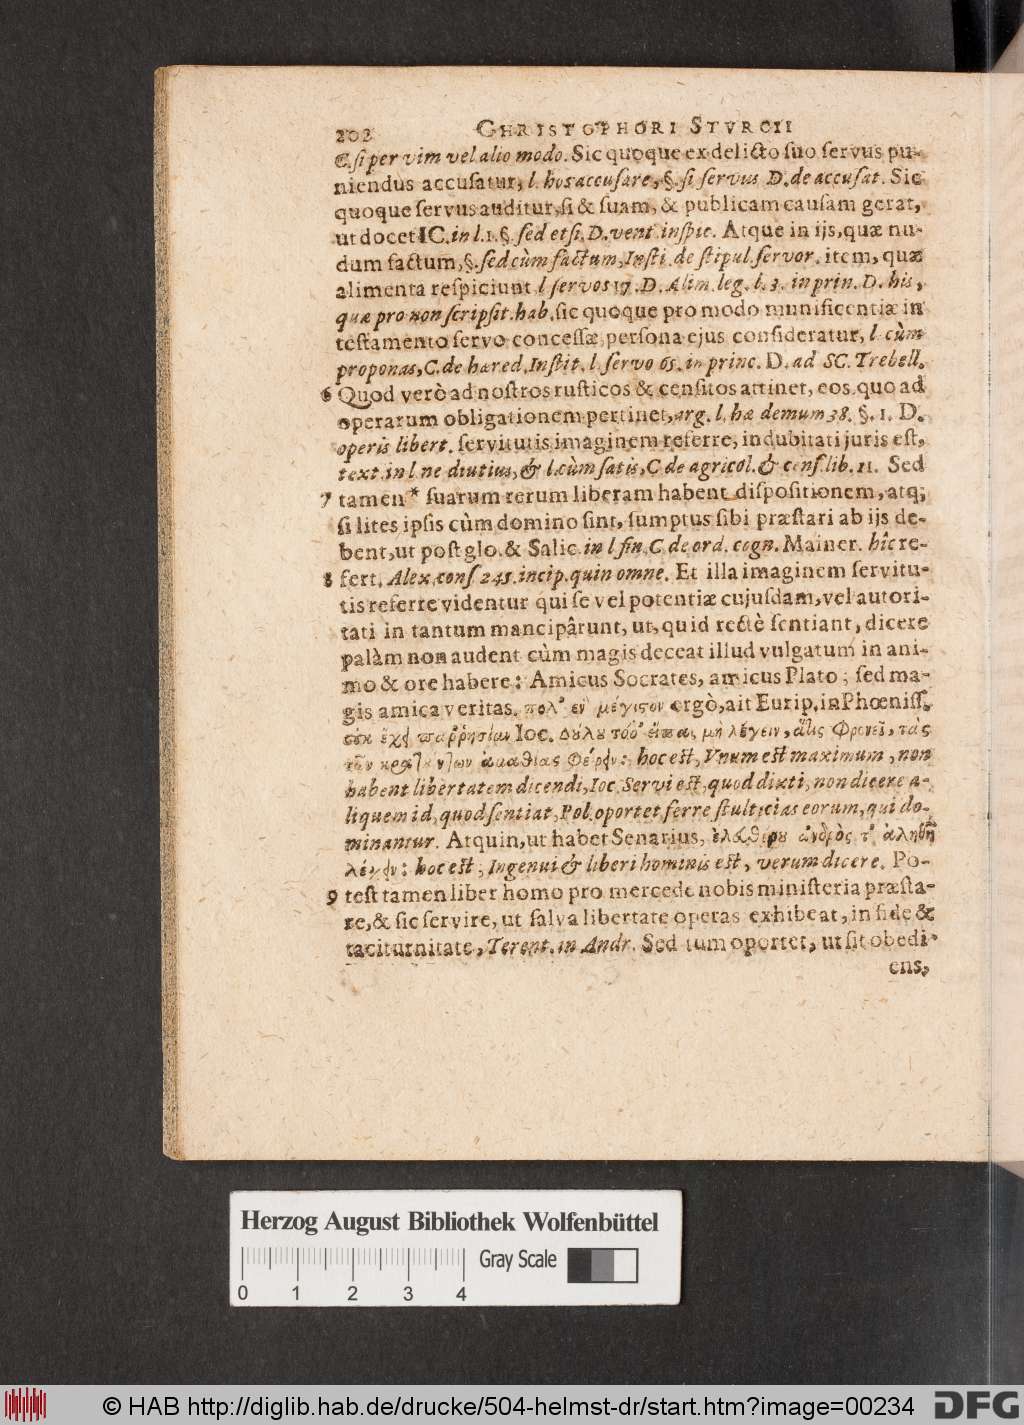 202 CHRISTOPHORI STVRCII
C. si per vim vel alio modo. Sic quoque ex delicto suo servus pu-
niendus accusatur, l. hos accusare, §. si servus D. de accusat. Sic
quoque servus auditur, si & suam, & publicam causam gerat,
ut docet IC. in l. 1. §. sed etsi. D. vent. inspic. Atque in ijs, quæ nu-
dum factum, §. sed cùm factum, Insti. de stipul. servor. item, quæ
alimenta respiciunt l servos 17. D. Alim. leg. l. 3. in prin. D. his,
quæ pro non scripsit. hab. sic quoque pro modo munificentiæ in
testamento servo concessæ, persona ejus consideratur, l. cùm
proponas, C. de hæred. Instit. l. servo 65. in princ. D. ad SC. Trebell.
6 Quod verò ad nostros rusticos & censitos attinet, eos quo ad
operarum obligationem pertinet, arg. l. hæ demum 38. §. 1. D.
operis libert. servitutis imaginem referre, indubitati juris est,
text. in l. ne diutius, & l. cùm satis, C. de agricol. & cens. lib. 11. Sed
7 tamen* suarum rerum liberam habent dispositionem, atq;
si lites ipsis cùm domino sint, sumptus sibi præstari ab ijs de-
bent, ut post glo. & Salic. in l. fin. C. de ord. cogn. Mainer. hîc re-
8 fert, Alex. cons. 245. incip. quin omne. Et illa imaginem servitu-
tis referre videntur qui se vel potentiæ cujusdam, vel autori-
tati in tantum mancipârunt, ut, quid rectè sentiant, dicere
palàm non audent cùm magis deceat illud vulgatum in ani-
mo & ore habere: Amicus Socrates, amicus Plato; sed ma-
gis amica veritas. μέγιστον ergò, ait Eurip. in Phœniss.
Ioc. μὴ λέγειν, φρονεῖ, τὰς
hoc est, Unum est maximum, non
habent libertatem dicendi, Ioc. Servi est, quod dixti, non dicere a-
liquem id, quod sentiat, Pol. oportet ferre stulticias eorum, qui do-
minantur. Atquin, ut habet Senarius, ἐλευθέρου ἀνδρὸς τ' ἀληθῆ
λέγειν: hoc est, Ingenui & liberi hominis est, verum dicere. Po-
9 test tamen liber homo pro mercede nobis ministeria præsta-
re, & sic servire, ut salva libertate operas exhibeat, in fide &
taciturnitate, Terent. in Andr. Sed tum oportet, ut sit obedi-
ens,
Herzog August Bibliothek Wolfenbüttel
Gray Scale
0 1 2 3 4
© HAB http://diglib.hab.de/drucke/504-helmst-dr/start.htm?image=00234
DFG